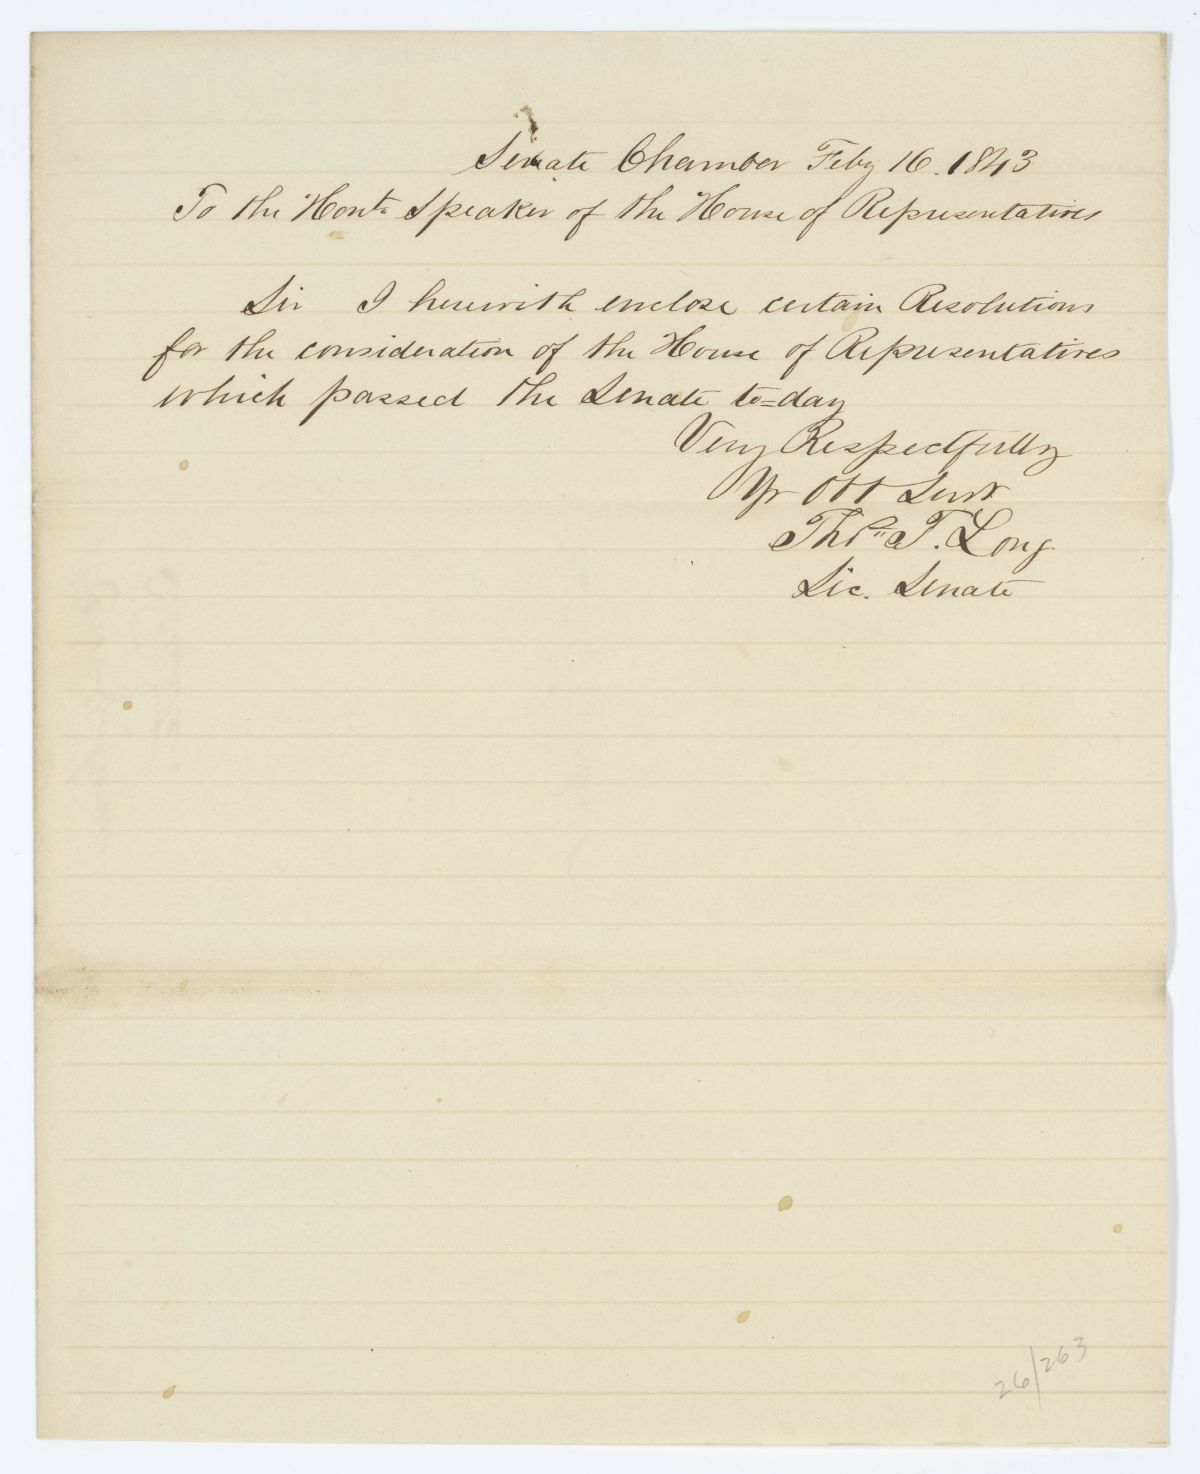 Senate Chamber Feby 16. 1843
To the Honl. Speaker of the House of Representatives
Sir I herewith enclose certain Resolutions
for the consideration of the House of Representatives
which passed the Senate to=day
Very Respectfully
Yr Obt Servt
Thos. T. Long
Sec. Senate
26/263